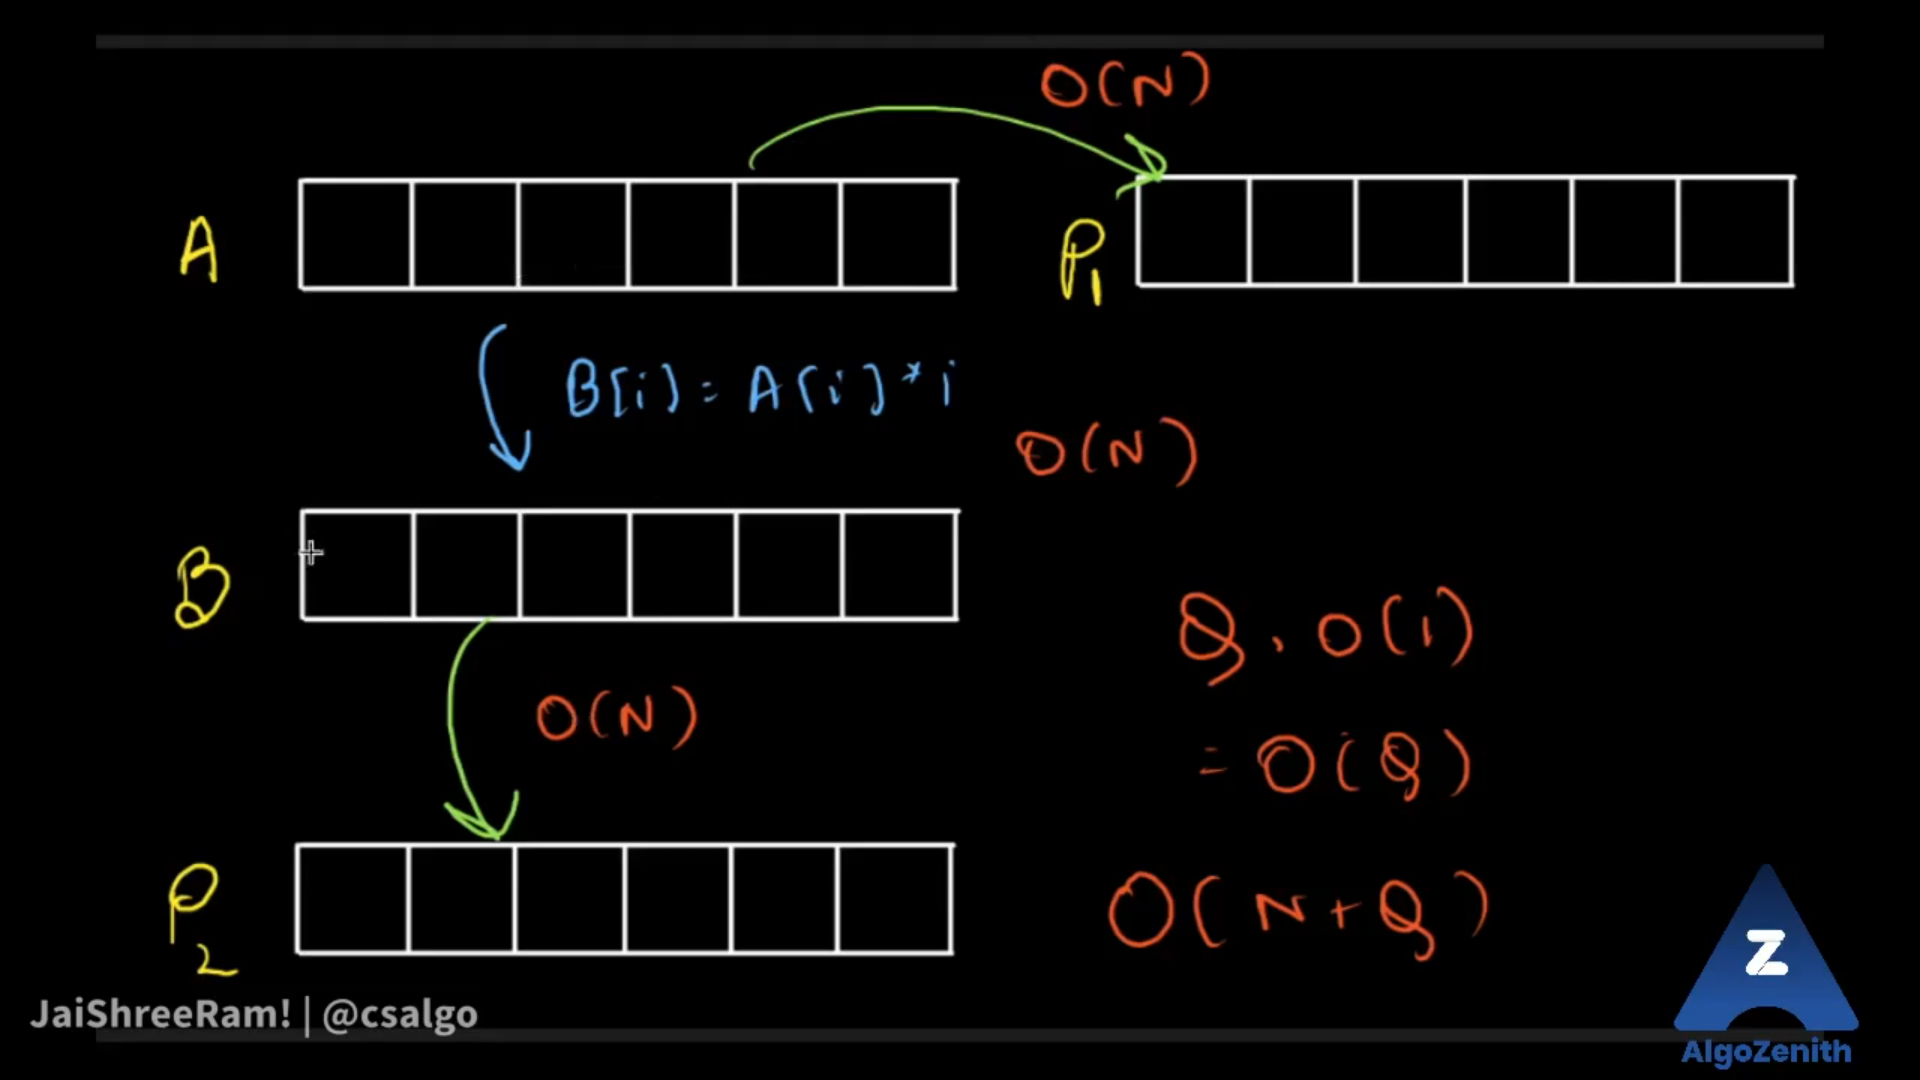 O(N)
A
P1
B[i] = A[i] * i
O(N)
B
Q . O(1)
O(N)
= O(Q)
P2
O(N+Q)
JaiShreeRam! | @csalgo
Z
AlgoZenith